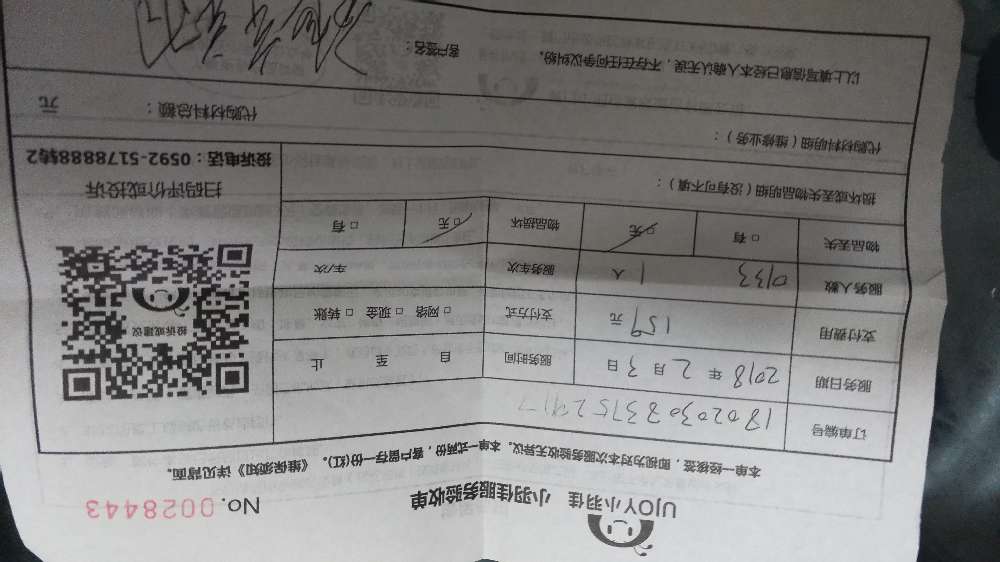 UJOY小羽佳 小羽佳服务验收单
No. 0028443
本单一经核签，即视为对本次服务验收无异议。本单一式两份，客户留存一份(红)。《维保须知》详见背面。
订单编号 180203033752917
服务日期 2018 年 2 月 3 日 服务时间 自 至 止
支付费用 159 元 支付方式 □ 网络 □ 现金 □ 转账
服务人数 0133 1 人 服务车次 车/次
物品丢失 □ 有 □ 无 物品损坏 □ 无 □ 有
投诉或建议
扫码评价或投诉
投诉电话：0592-5178888转2
损坏或丢失物品明细（没有可不填）：
代购材料明细（维修业务）：
代购材料总额： 元
以上填写信息已经本人确认无误，不存在任何争议纠纷。 客户签名：